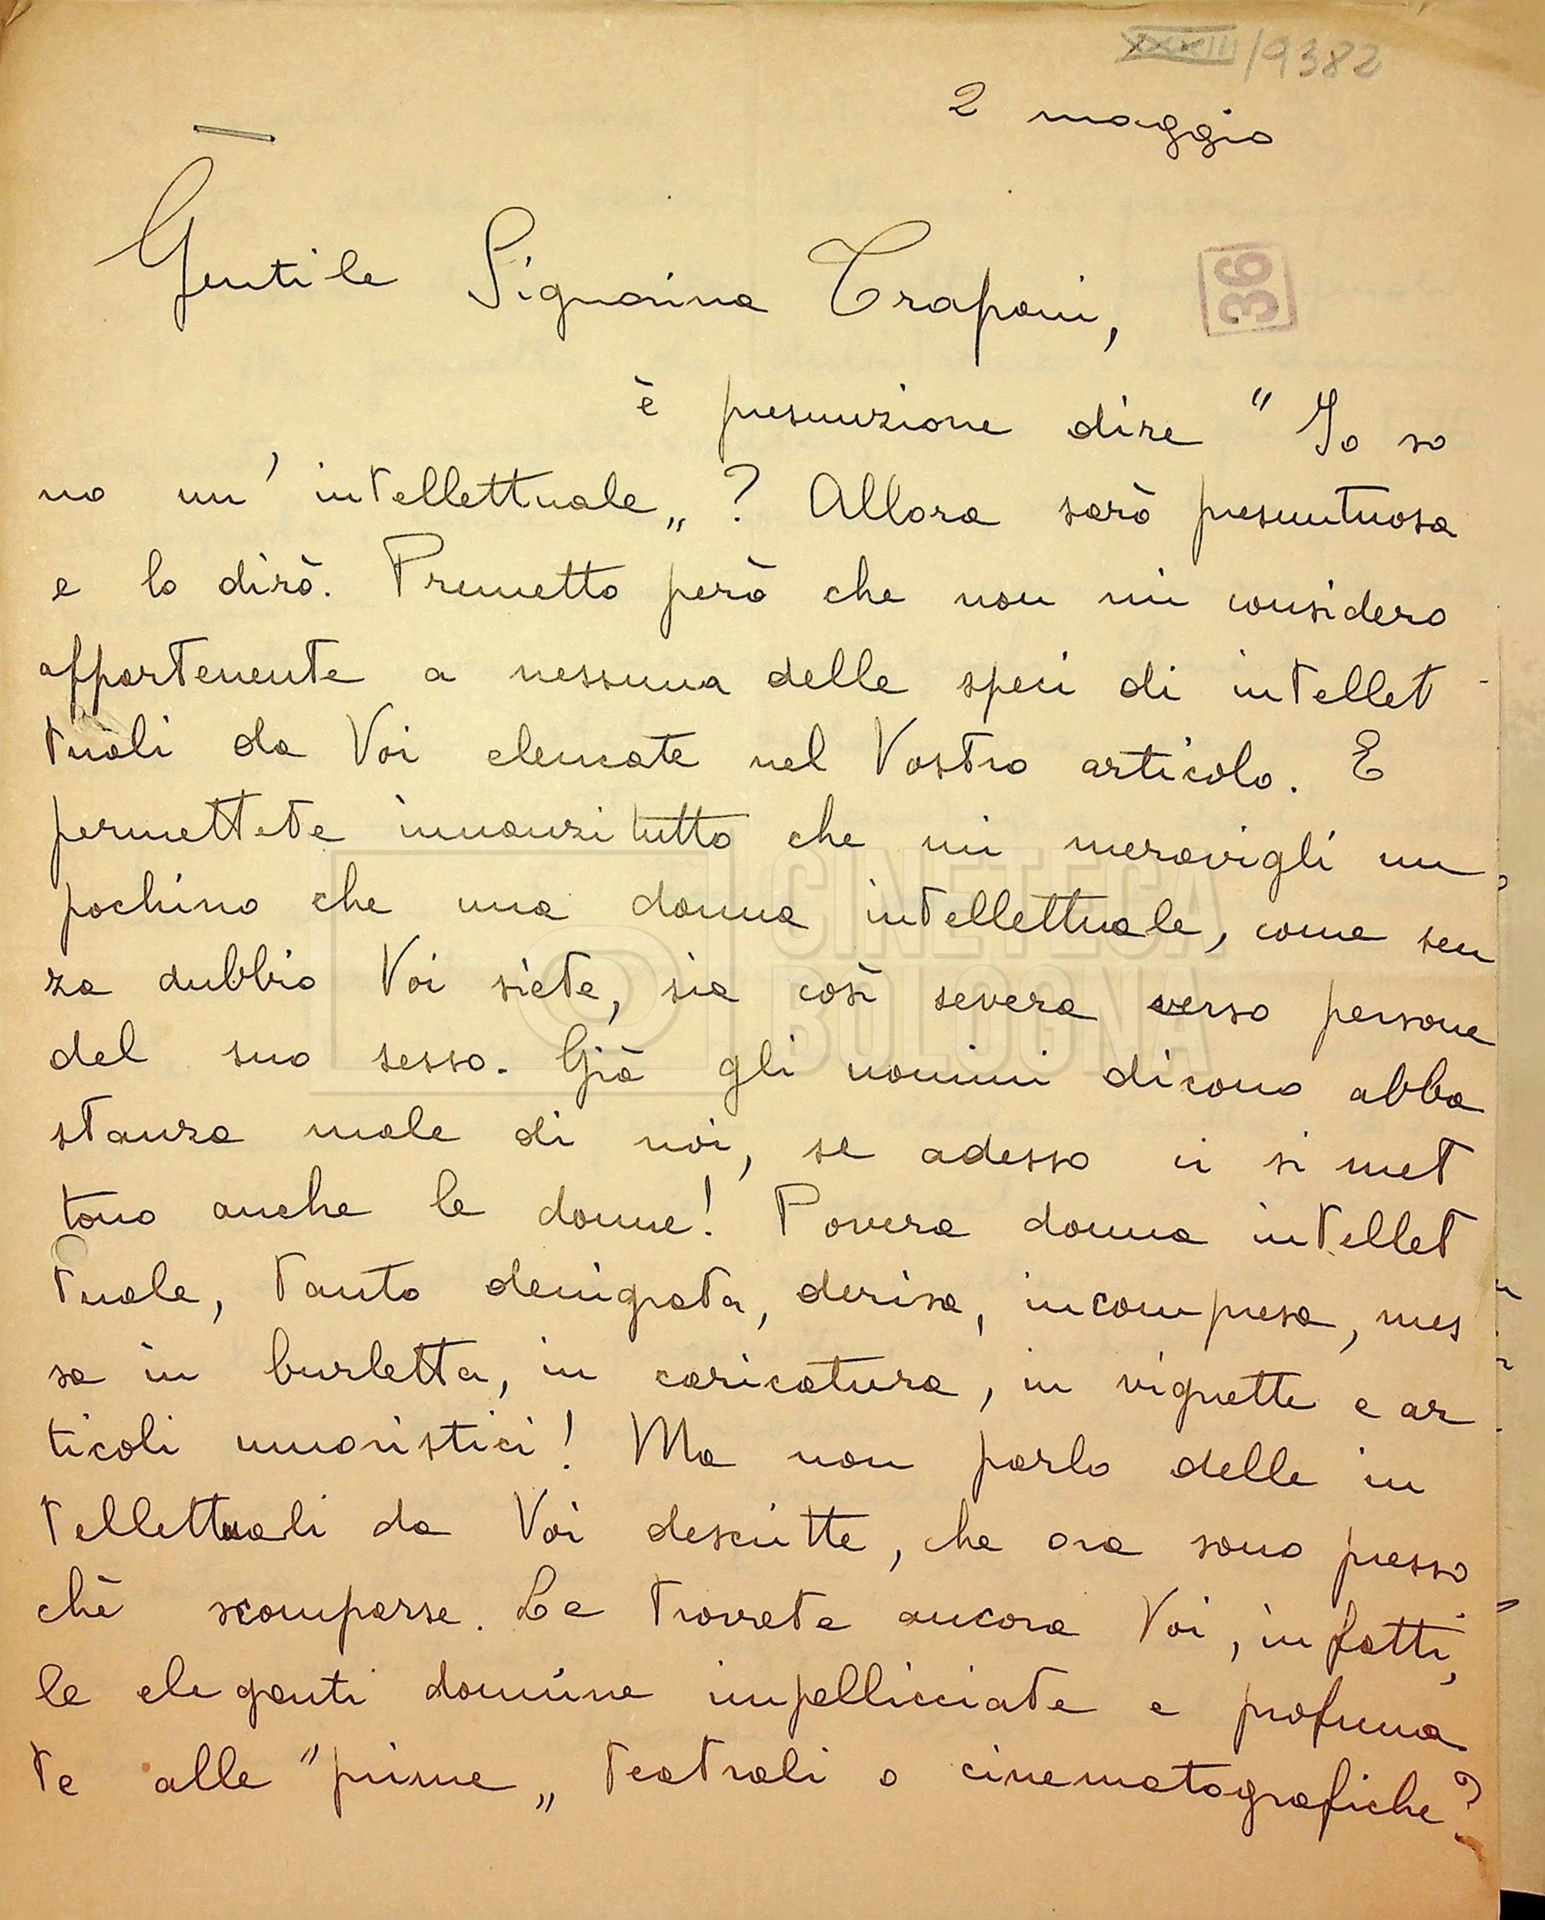 XXXIII/9382
2 maggio
Gentile Signorina Trapani,
36
è presunzione dire " Io so
no un' intellettuale „ ? Allora sarò presuntuosa
e lo dirò. Premetto però che non mi considero
appartenente a nessuna delle speci di intellet
tuali da Voi elencate nel Vostro articolo. E
permettete innanzi tutto che mi meravigli un
pochino che una donna intellettuale, come sen
za dubbio Voi siete, sia così severa verso persone
del suo sesso. Già gli uomini dicono abba
stanza male di noi, se adesso ci si met
tono anche le donne! Povera donna intellet
tuale, tanto denigrata, derisa, incompresa, mes
sa in burletta, in caricatura, in vignette e ar
ticoli umoristici! Ma non parlo delle in
tellettuali da Voi descritte, che ora sono presso
chè scomparse. Le trovate ancora Voi, infatti,
le eleganti donnine impellicciate e profuma
te alle "prime „ teatrali o cinematografiche?
CINETECA
BOLOGNA